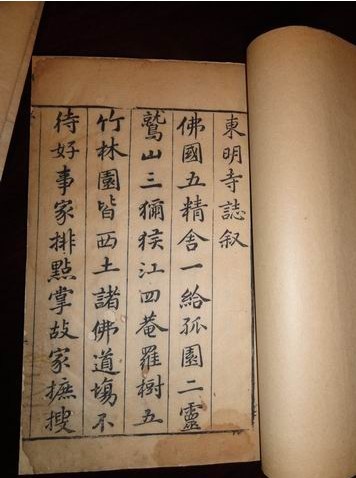 東明寺誌叙
佛國五精舍一給孤園二靈
鷲山三獼猴江四菴羅樹五
竹林園皆西土諸佛道塲不
待好事家排點掌故家摭搜